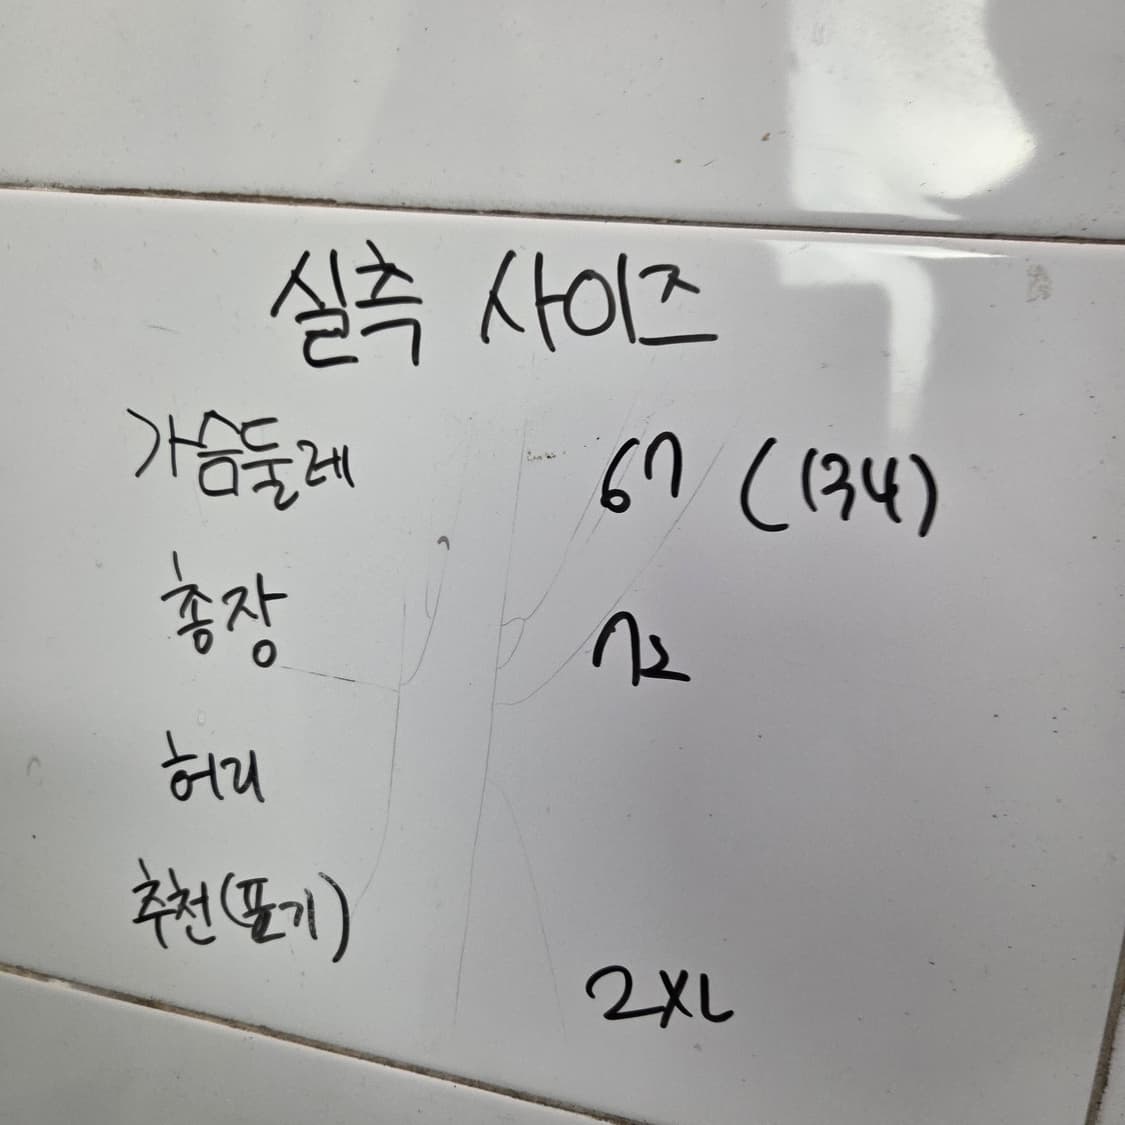 실측 사이즈
가슴둘레 67 (134)
총장 72
허리
추천(표기)
2XL